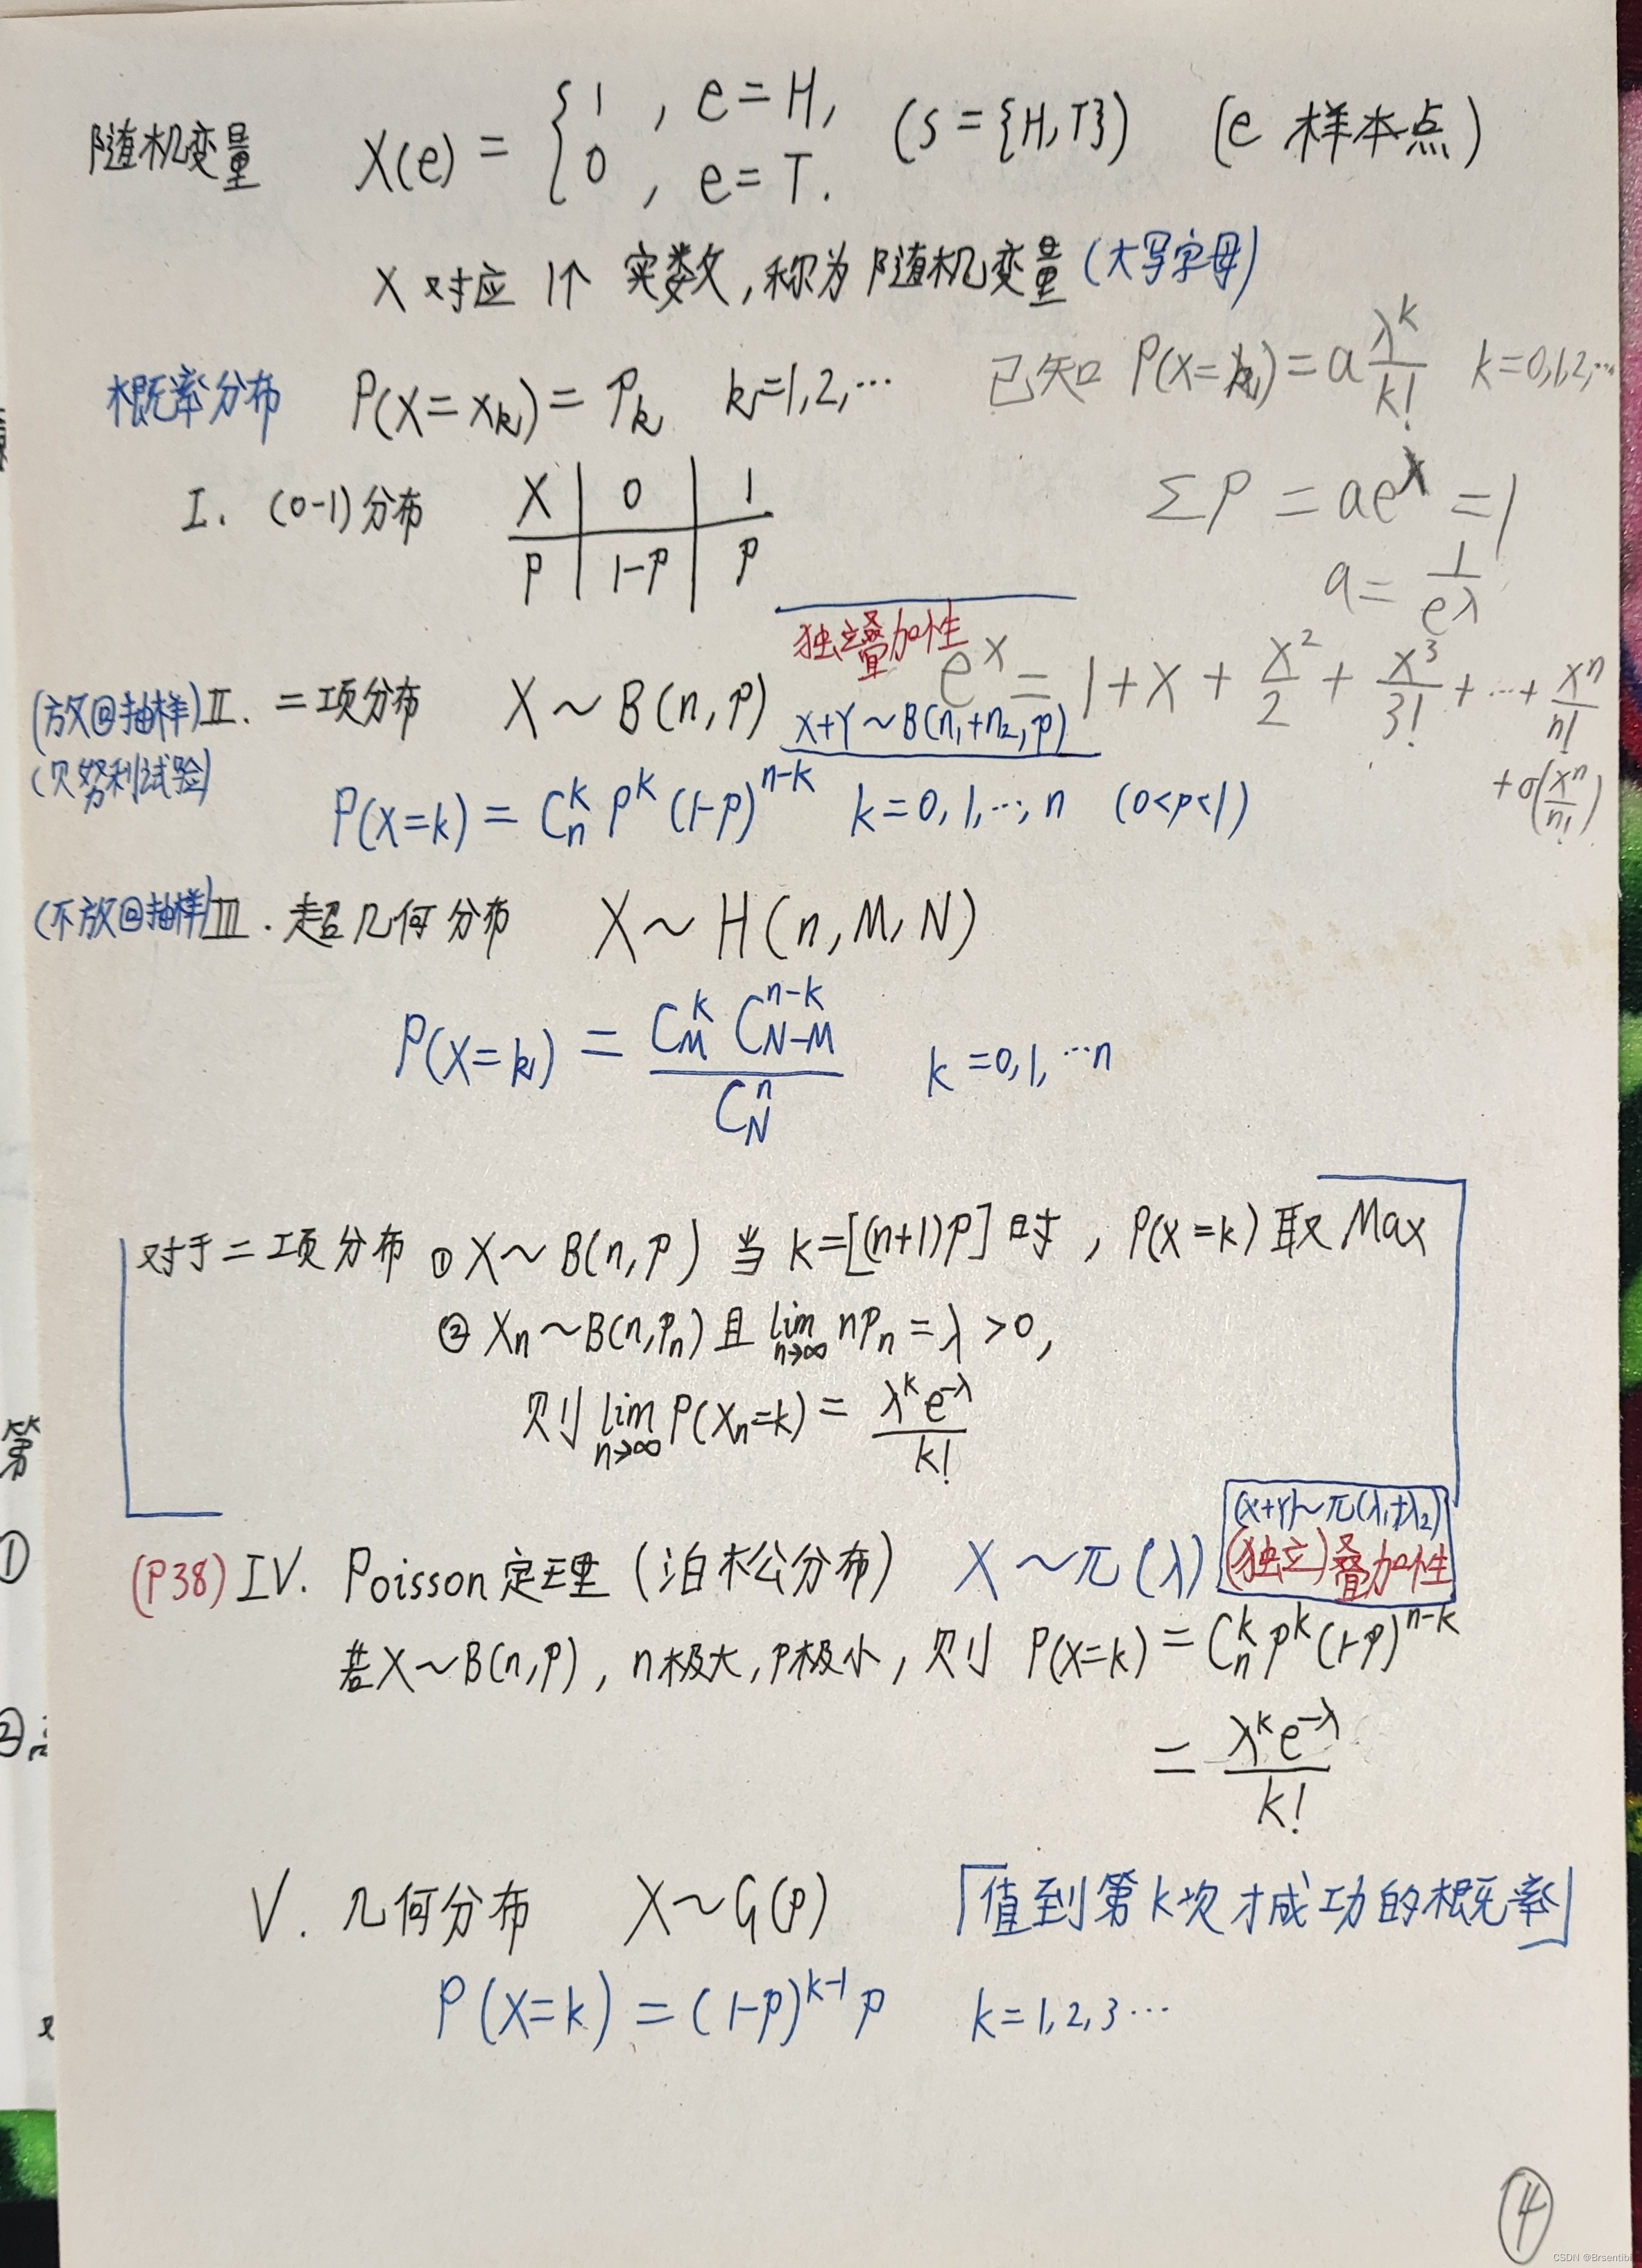 随机变量 X(e) = { 1 , e=H, (S={H,T}) (e 样本点)
0 , e=T.
X 对应 1个 实数,称为随机变量(大写字母)
概率分布 P(X=x_k) = P_k k=1,2,… 已知 P(X=k) = a λ^k/k! k=0,1,2,…
I. (0-1)分布 X | 0 | 1 ΣP = ae^λ = 1
P | 1-P | P a = 1/e^λ
独立叠加性
e^x = 1+x+x^2/2+x^3/3!+…+x^n/n!
+o(x^n/n!)
(放回抽样)II. 二项分布 X~B(n,p) X+Y~B(n₁+n₂,p)
(贝努利试验)
P(X=k) = C_n^k p^k (1-p)^{n-k} k=0,1,…,n (0<p<1)
(不放回抽样)III. 超几何分布 X~H(n,M,N)
P(X=k) = C_M^k C_{N-M}^{n-k} / C_N^n k=0,1,…n
对于二项分布 ① X~B(n,p) 当 k=[(n+1)p] 时, P(X=k) 取 Max
② X_n~B(n,p_n) 且 lim_{n→∞} np_n = λ >0,
则 lim_{n→∞} P(X_n=k) = λ^k e^{-λ}/k!
(X+Y)~π(λ₁+λ₂)
(P38) IV. Poisson定理(泊松分布) X~π(λ) (独立)叠加性
若X~B(n,p), n极大,p极小, 则 P(X=k) = C_n^k p^k (1-p)^{n-k}
= λ^k e^{-λ}/k!
V. 几何分布 X~G(p) 「值到第k次才成功的概率」
P(X=k) = (1-p)^{k-1} p k=1,2,3…
第
①
②
④
CSDN @Brsentibi